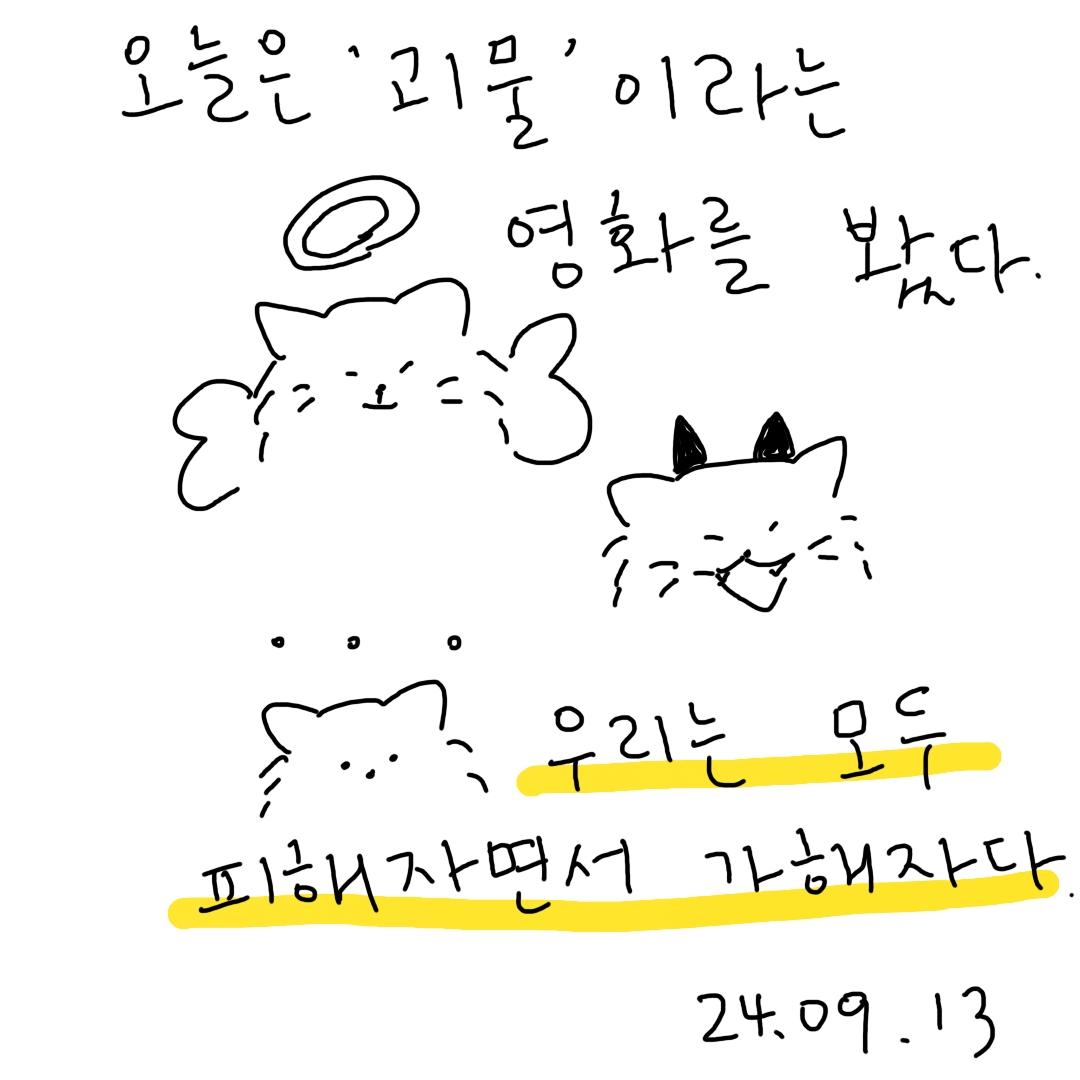 오늘은 '괴물' 이라는
영화를 봤다.
우리는 모두
피해자면서 가해자다.
24.09.13